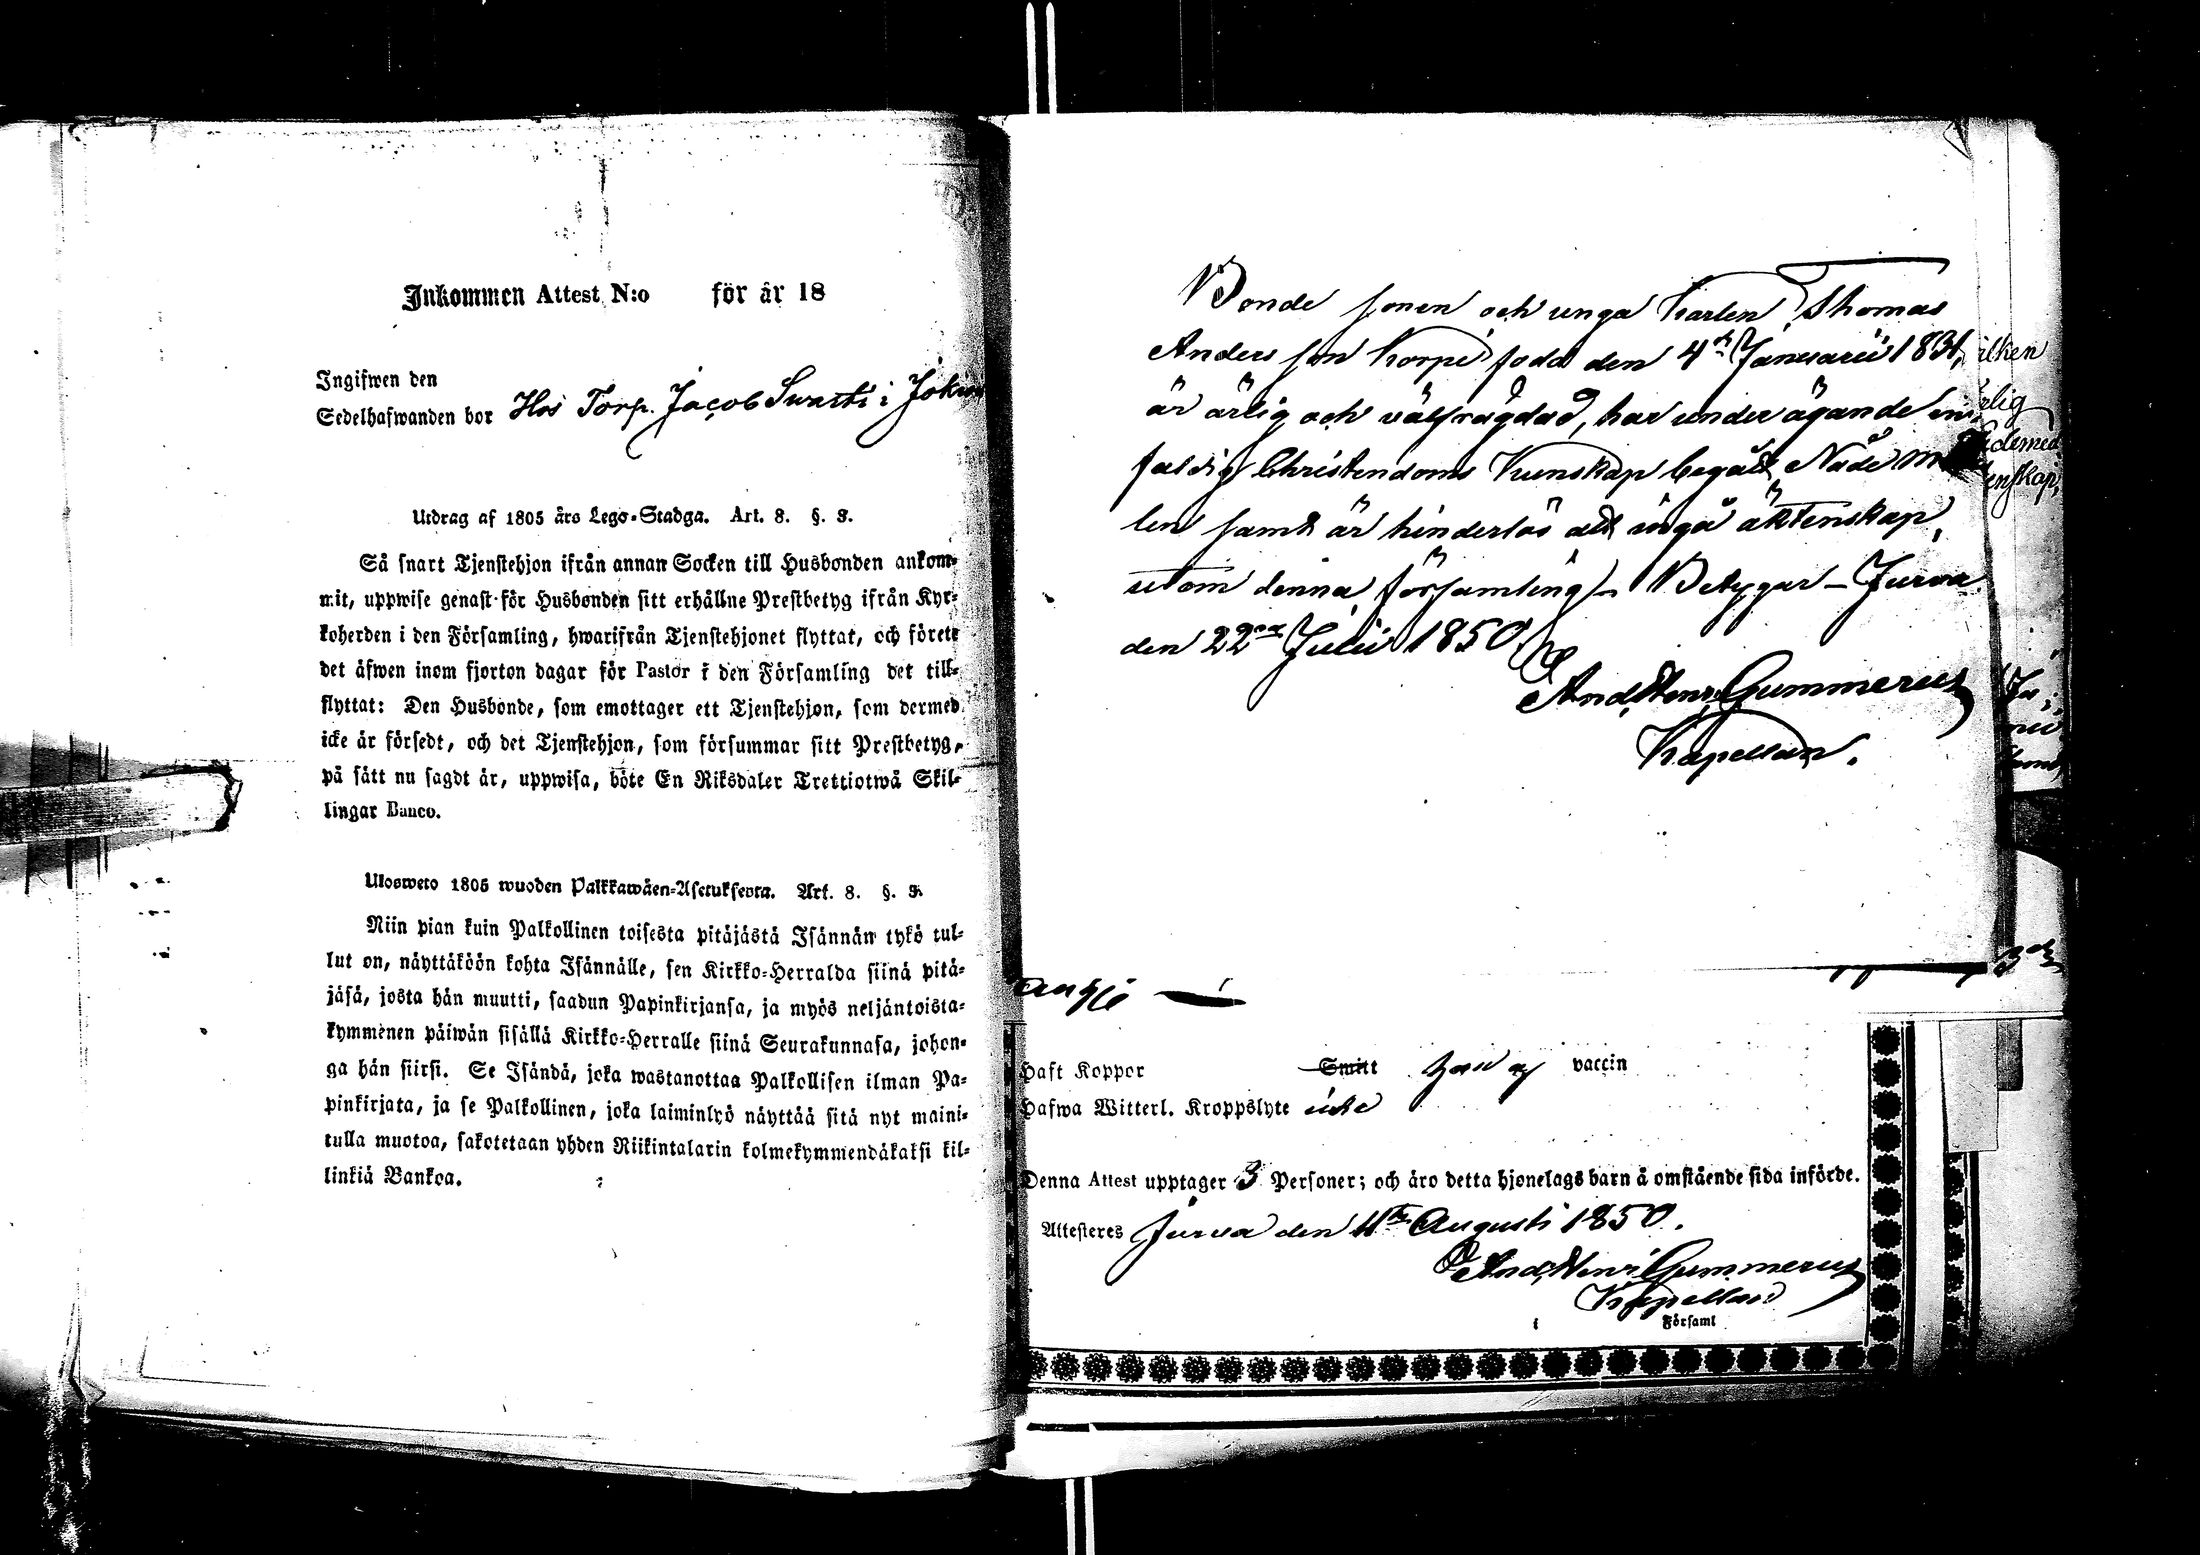 Inkommen Attest N:o för år 18
Ingifwen den
Sedelhafwanden bor Hos Torp. Jacob Swarti i Jokw
Utdrag af 1805 års Lego-Stadga. Art. 8. §. 3.
Så snart Tjenstehjon ifrån annan Socken till Husbonden ankom-
mit, uppwise genast för Husbonden sitt erhållne Prestbetyg ifrån Kyr-
koherden i den Församling, hwarifrån Tjenstehjonet flyttat, och förete
det äfwen inom fjorton dagar för Pastor i den Församling det till-
flyttat: Den Husbonde, som emottager ett Tjenstehjon, som dermed
icke är försedt, och det Tjenstehjon, som försummar sitt Prestbetyg,
på sätt nu sagdt är, uppwisa, böte En Riksdaler Trettiotwå Skil-
lingar Banco.
Uloswето 1805 wuoden Palkkawäen-Asetuksesta. Art. 8. §. 3.
Niin pian kuin Palkollinen toisesta pitäjästä Isännän tykö tul-
lut on, näyttäköön kohta Isännälle, sen Kirkko-Herralda siinä pitä-
jäsä, josta hän muutti, saadun Papinkirjansa, ja myös neljäntoista-
kymmenen päiwän sisällä Kirkko-Herralle siinä Seurakunnasa, johon-
ga hän siirsi. Se Isändä, joka wastanottaa Palkollisen ilman Pa-
pinkirjata, ja se Palkollinen, joka laiminlyö näyttää sitä nyt maini-
tulla muotoa, sakotetaan yhden Riikintalarin kolmekymmendäkaksi kil-
linkiä Bankoa.
Bonde sonen och unga Karlen Thomas
Anders son Korpi född den 4de Januarii 1831,
är ärlig och välfrägdad, har under ägande en
faldig Christendoms Kunskap begått Nade m
len samt är hinderlös att ingå äktenskap,
utom denna församling – Betygar – Jurva
den 22dra Julii 1850
And. Henr. Gummerus
Kapellan.
ilken
rlig
demed
enskap,
Haft Koppor Smitt vaccin
Hafwa Witterl. Kroppslyte icke
Denna Attest upptager 3 Personer; och äro detta hjonelags barn å omstående sida införde.
Attesteres Jurva den 4de Augusti 1850.
And. Henr. Gummerus
Kapellan
i Församl